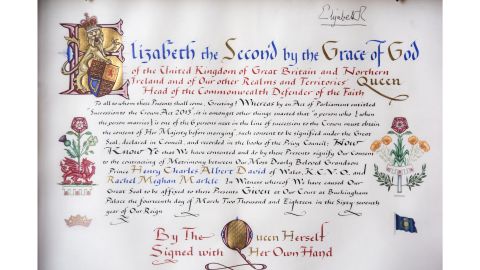 Elizabeth R
Elizabeth the Second by the Grace of God
of the United Kingdom of Great Britain and Northern
Ireland and of Our other Realms and Territories Queen
Head of the Commonwealth Defender of the Faith
To all to whom these Presents shall come, Greeting! Whereas by an Act of Parliament entituled
"Succession to the Crown Act 2013" it is amongst other things enacted that "a person who (when
the person marries) is one of the 6 persons next in the line of succession to the Crown must obtain
the consent of Her Majesty before marrying", such consent to be signified under the Great
Seal, declared in Council, and recorded in the books of the Privy Council: Now
Know Ye that We have consented and do by these Presents signify Our Consent
to the contracting of Matrimony between Our Most Dearly Beloved Grandson
Prince Henry Charles Albert David of Wales, K.C.V.O., and
Rachel Meghan Markle. In Witness whereof We have caused Our
Great Seal to be affixed to these Presents Given at Our Court at Buckingham
Palace the fourteenth day of March Two Thousand and Eighteen in the Sixty-seventh
year of Our Reign
By The Queen Herself
Signed with Her Own Hand